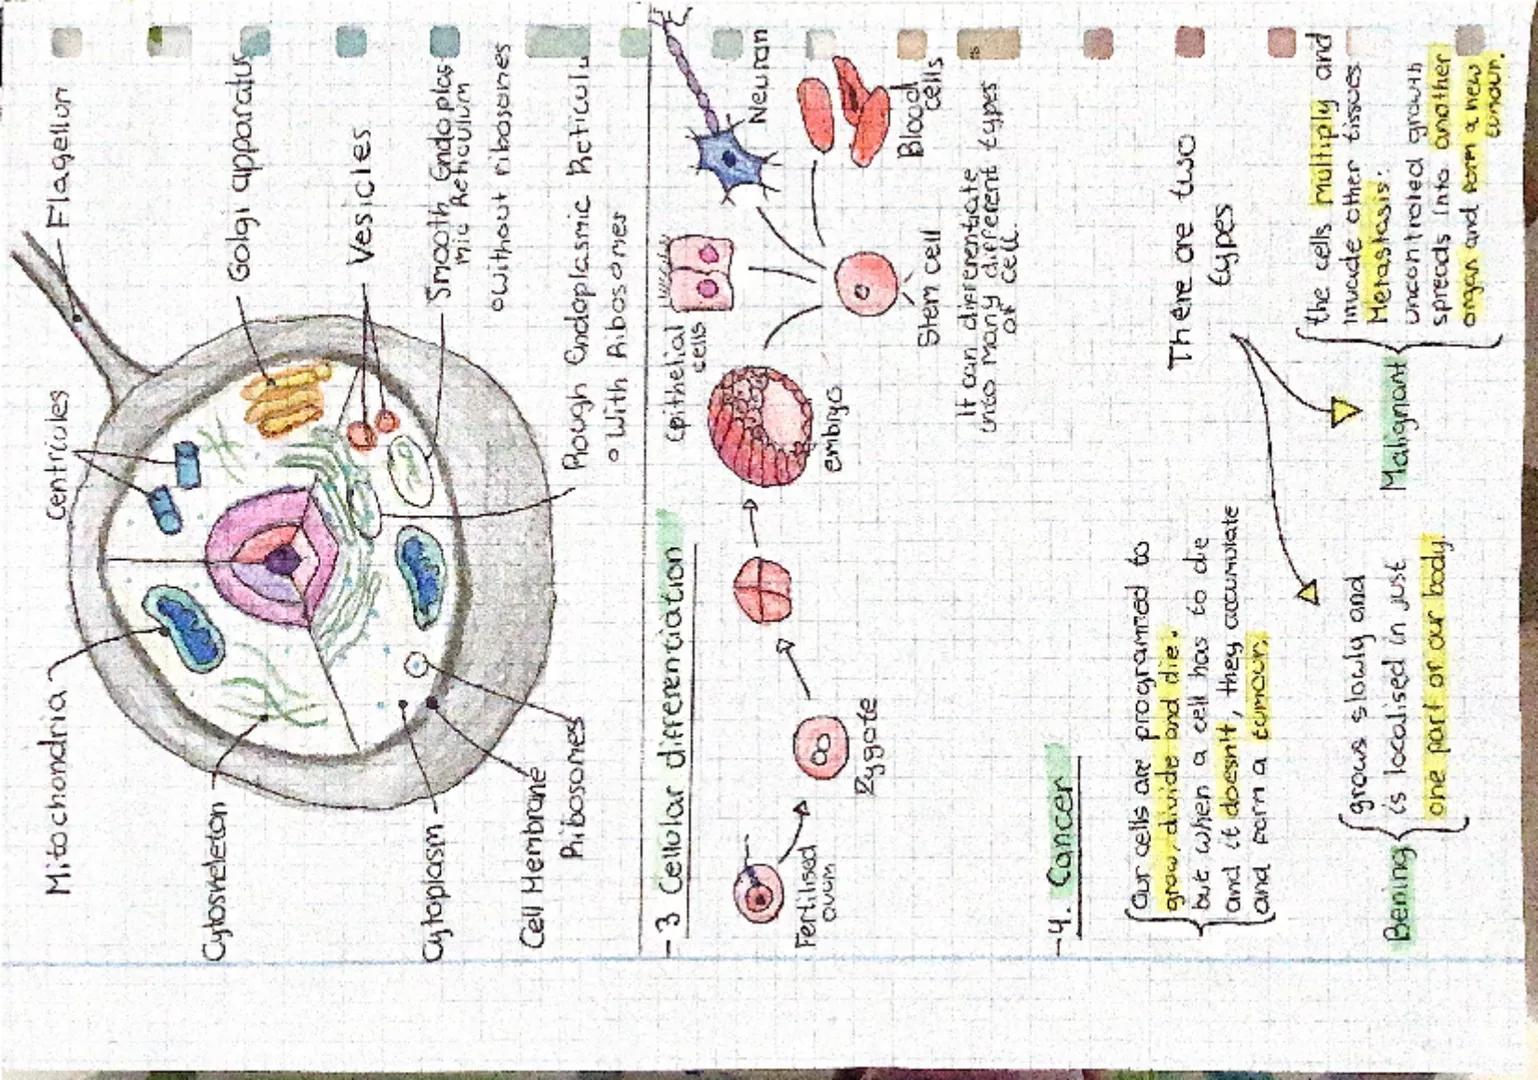 Mitochondria
Centricules
Flagellun
Golgi apparatus
Vesicles
Smooth Endoplas
mic Reticulum
o without ribosomes
Rough Endoplasmic Reticulu
o With Ribosomes
Cytoskeleton
Cytoplasm
Cell Membrane
Ribosomes
-3 Cellular differentiation
Fertilised
ovum
Zygote
embryo
Epithelial
cells
Neuron
Blood
cells
Stem cell
It can differentiate
into many different types
of cell.
-4. Cancer
Our cells are programmed to
grow, divide and die.
but when a cell has to die
and it doesn't, they accumulate
and form a tumour.
There are two
types
Bening
grows slowly and
is localised in just
one part of our body.
Malignant
the cells multiply and
invade other tissues.
Metastasis:
uncontroled growth
spreads into another
organ and form a new
tumour.